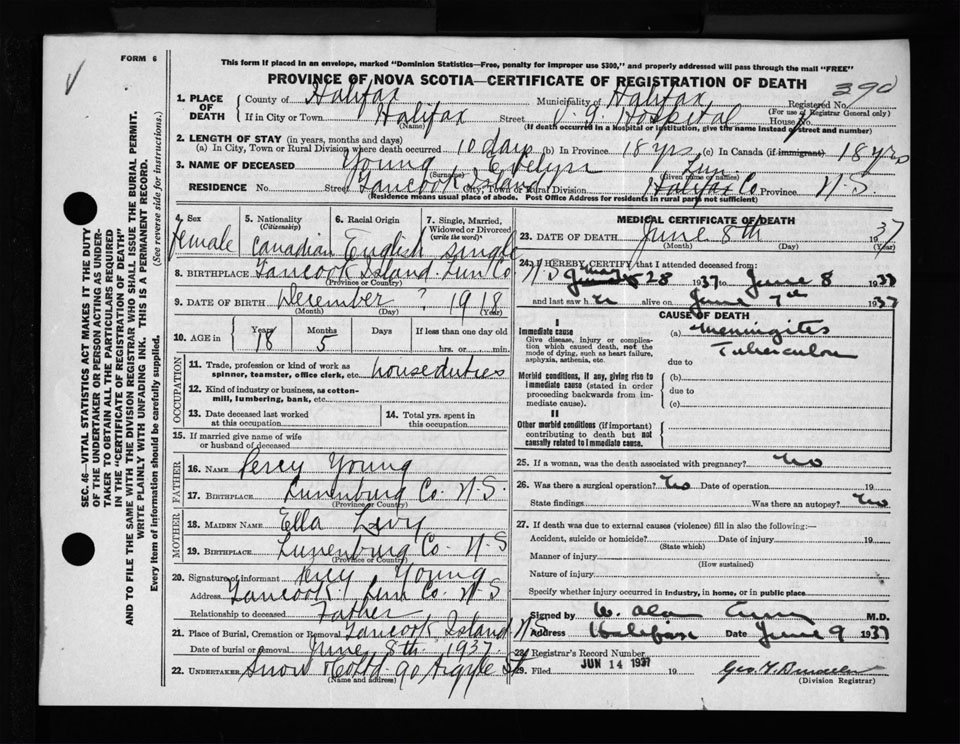 FORM 6
This form if placed in an envelope, marked "Dominion Statistics—Free, penalty for improper use $300," and properly addressed will pass through the mail "FREE"
PROVINCE OF NOVA SCOTIA—CERTIFICATE OF REGISTRATION OF DEATH
390
1. PLACE OF DEATH County of Halifax Municipality of Halifax Registered No.
(For use of Registrar General only)
If in City or Town Halifax Street V. G. Hospital House No.
(Name) (If death occurred in a hospital or institution, give the name instead of street and number)
2. LENGTH OF STAY (in years, months and days)
(a) In City, Town or Rural Division where death occurred 10 days (b) In Province 18 yrs (c) In Canada (if immigrant) 18 yrs
3. NAME OF DECEASED Young Evelyn
(Surname) (Given name or names)
RESIDENCE No. Street Tancook Island City, Town or Rural Division Lun. Halifax Co Province N.S.
(Residence means usual place of abode. Post Office Address for residents in rural parts not sufficient)
4. Sex female
5. Nationality (Citizenship) Canadian
6. Racial Origin English
7. Single, Married, Widowed or Divorced (write the word) Single
8. BIRTHPLACE Tancook Island Lun Co N.S
(Province or Country)
9. DATE OF BIRTH December ? 1918
(Month) (Day) (Year)
10. AGE in Years 18 Months 5 Days If less than one day old
hrs. or min.
OCCUPATION
11. Trade, profession or kind of work as spinner, teamster, office clerk, etc. house duties
12. Kind of industry or business, as cotton-mill, lumbering, bank, etc.
13. Date deceased last worked at this occupation
14. Total yrs. spent in this occupation
15. If married give name of wife or husband of deceased
FATHER
16. NAME Percy Young
17. BIRTHPLACE Lunenburg Co. N.S.
(Province or Country)
MOTHER
18. MAIDEN NAME Ella Levy
19. BIRTHPLACE Lunenburg Co. N.S
(Province or Country)
20. Signature of informant Percy Young
Address Tancook Lun Co. N.S
Relationship to deceased Father
21. Place of Burial, Cremation or Removal Tancook Island N.S
Date of burial or removal June 8th 1937
22. UNDERTAKER Snow & Co Ltd. 90 Argyle St
(Name and address)
MEDICAL CERTIFICATE OF DEATH
23. DATE OF DEATH June 8th 1937
(Month) (Day)
24. I HEREBY CERTIFY that I attended deceased from:
May 28 1937 to June 8 1937
and last saw her alive on June 7th 1937
CAUSE OF DEATH
I
Immediate cause
Give disease, injury or complication which caused death, not the mode of dying, such as heart failure, asphyxia, asthenia, etc.
(a) Meningitis
Tuberculous
due to
Morbid conditions, if any, giving rise to immediate cause (stated in order proceeding backwards from immediate cause).
(b)
due to
(c)
II
Other morbid conditions (if important) contributing to death but not causally related to immediate cause.
25. If a woman, was the death associated with pregnancy? No
26. Was there a surgical operation? No Date of operation 19
State findings Was there an autopsy? No
27. If death was due to external causes (violence) fill in also the following:—
Accident, suicide or homicide? Date of injury 19
(State which)
Manner of injury
(How sustained)
Nature of injury
Specify whether injury occurred in industry, in home, or in public place
Signed by W. Alan Curry M.D.
Address Halifax Date June 9 1937
28. Registrar's Record Number
29. Filed JUN 14 1937 19
(Division Registrar)
SEC. 46—VITAL STATISTICS ACT MAKES IT THE DUTY
OF THE UNDERTAKER OR PERSON ACTING AS UNDER-
TAKER TO OBTAIN ALL THE PARTICULARS REQUIRED
IN THE "CERTIFICATE OF REGISTRATION OF DEATH"
AND TO FILE THE SAME WITH THE DIVISION REGISTRAR WHO SHALL ISSUE THE BURIAL PERMIT.
WRITE PLAINLY WITH UNFADING INK. THIS IS A PERMANENT RECORD.
Every item of information should be carefully supplied. (See reverse side for instructions.)